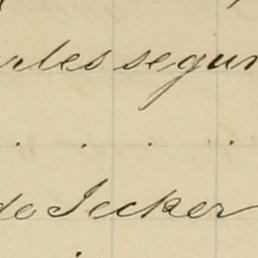 rles segun
. . . .
de Jecker